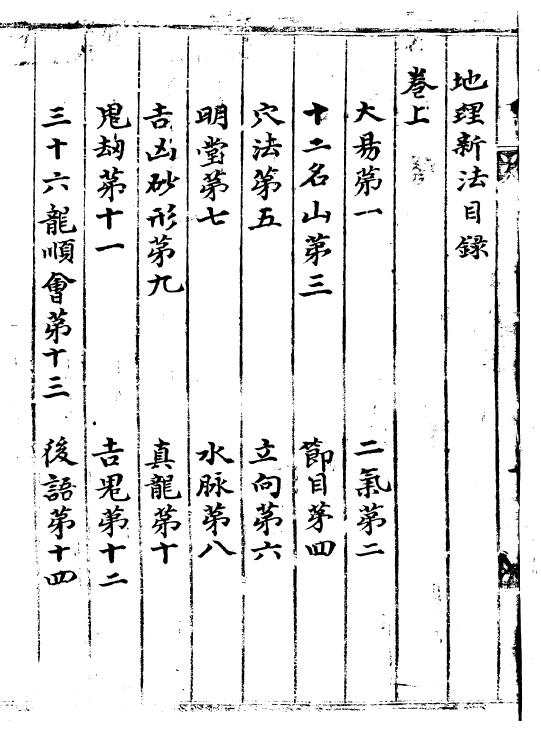 地理新法目録
卷上
大易苐一　二氣苐二
十二名山苐三　節目苐四
穴法苐五　立向苐六
明堂苐七　水脉苐八
吉凶砂形苐九　真龍苐十
鬼刼苐十一　吉鬼苐十二
三十六龍順會苐十三　後語苐十四